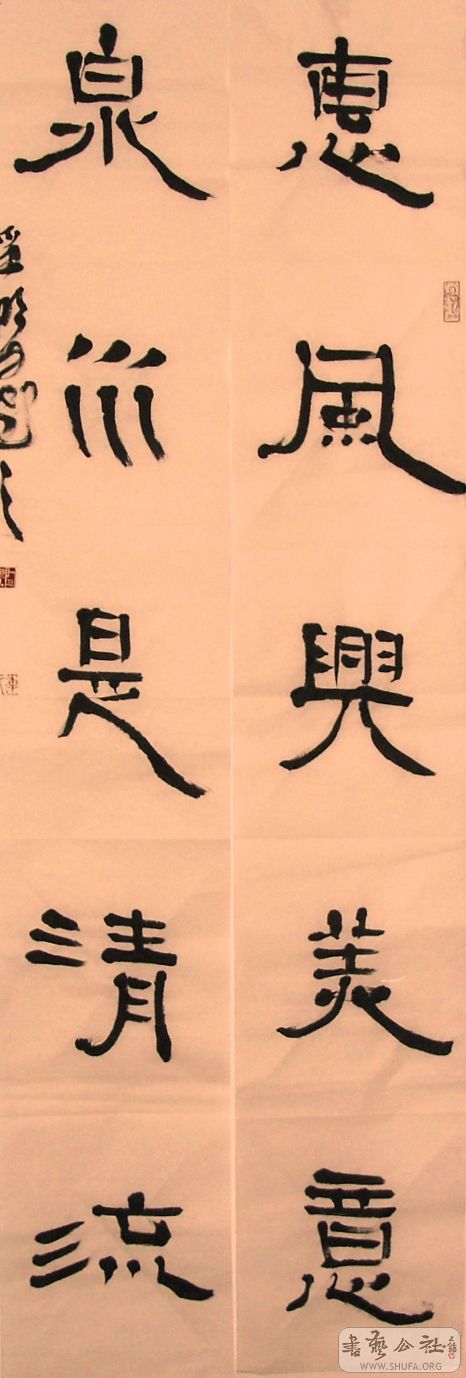 惠風興美意
泉水是清流
書藝公社
WWW.SHUFA.ORG